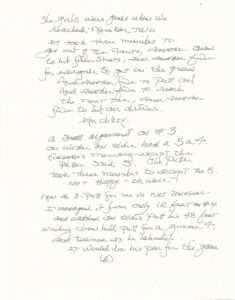 The girls were gone when we
reached number TWO
IT took three minutes TO
get out of the carts, another
to hit their shots, and another five
for everyone to get on the green
And another five to putt out
And another five to reach
the next tee, and another
five to hit our drives.
I'm dizzy.
a small argument on #3
on whether an oldie had a 5 or 4
everyone's memory except the
said 5. The
took three minutes to accept the 5.
NOT HAPPY. "Oh well."
now a 3-putt for me is not unusual.
I managed it from only 12 feet on #4
and watched an oldie putt his 48 foot
winding down hill putt for a gimme 4.
and two more as he
IT would be his par for the game
(6)